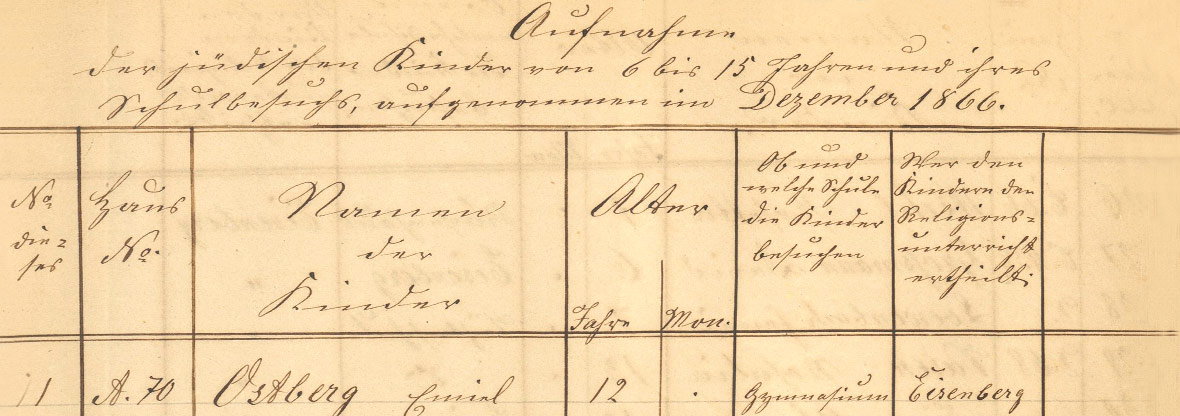 Aufnahme
der jüdischen Kinder von 6 bis 15 Jahren und ihres
Schulbesuchs, aufgenommen im Dezember 1866.
No. die=
ses
Haus
No.
Namen
der
Kinder
Alter
Jahre
Mon.
Ob und
welche Schule
die Kinder
besuchen
Wer den
Kindern den
Religions=
unterricht
ertheilt.
1 A. 70 Ostberg Emiel 12 . Gymnasium Eisenberg